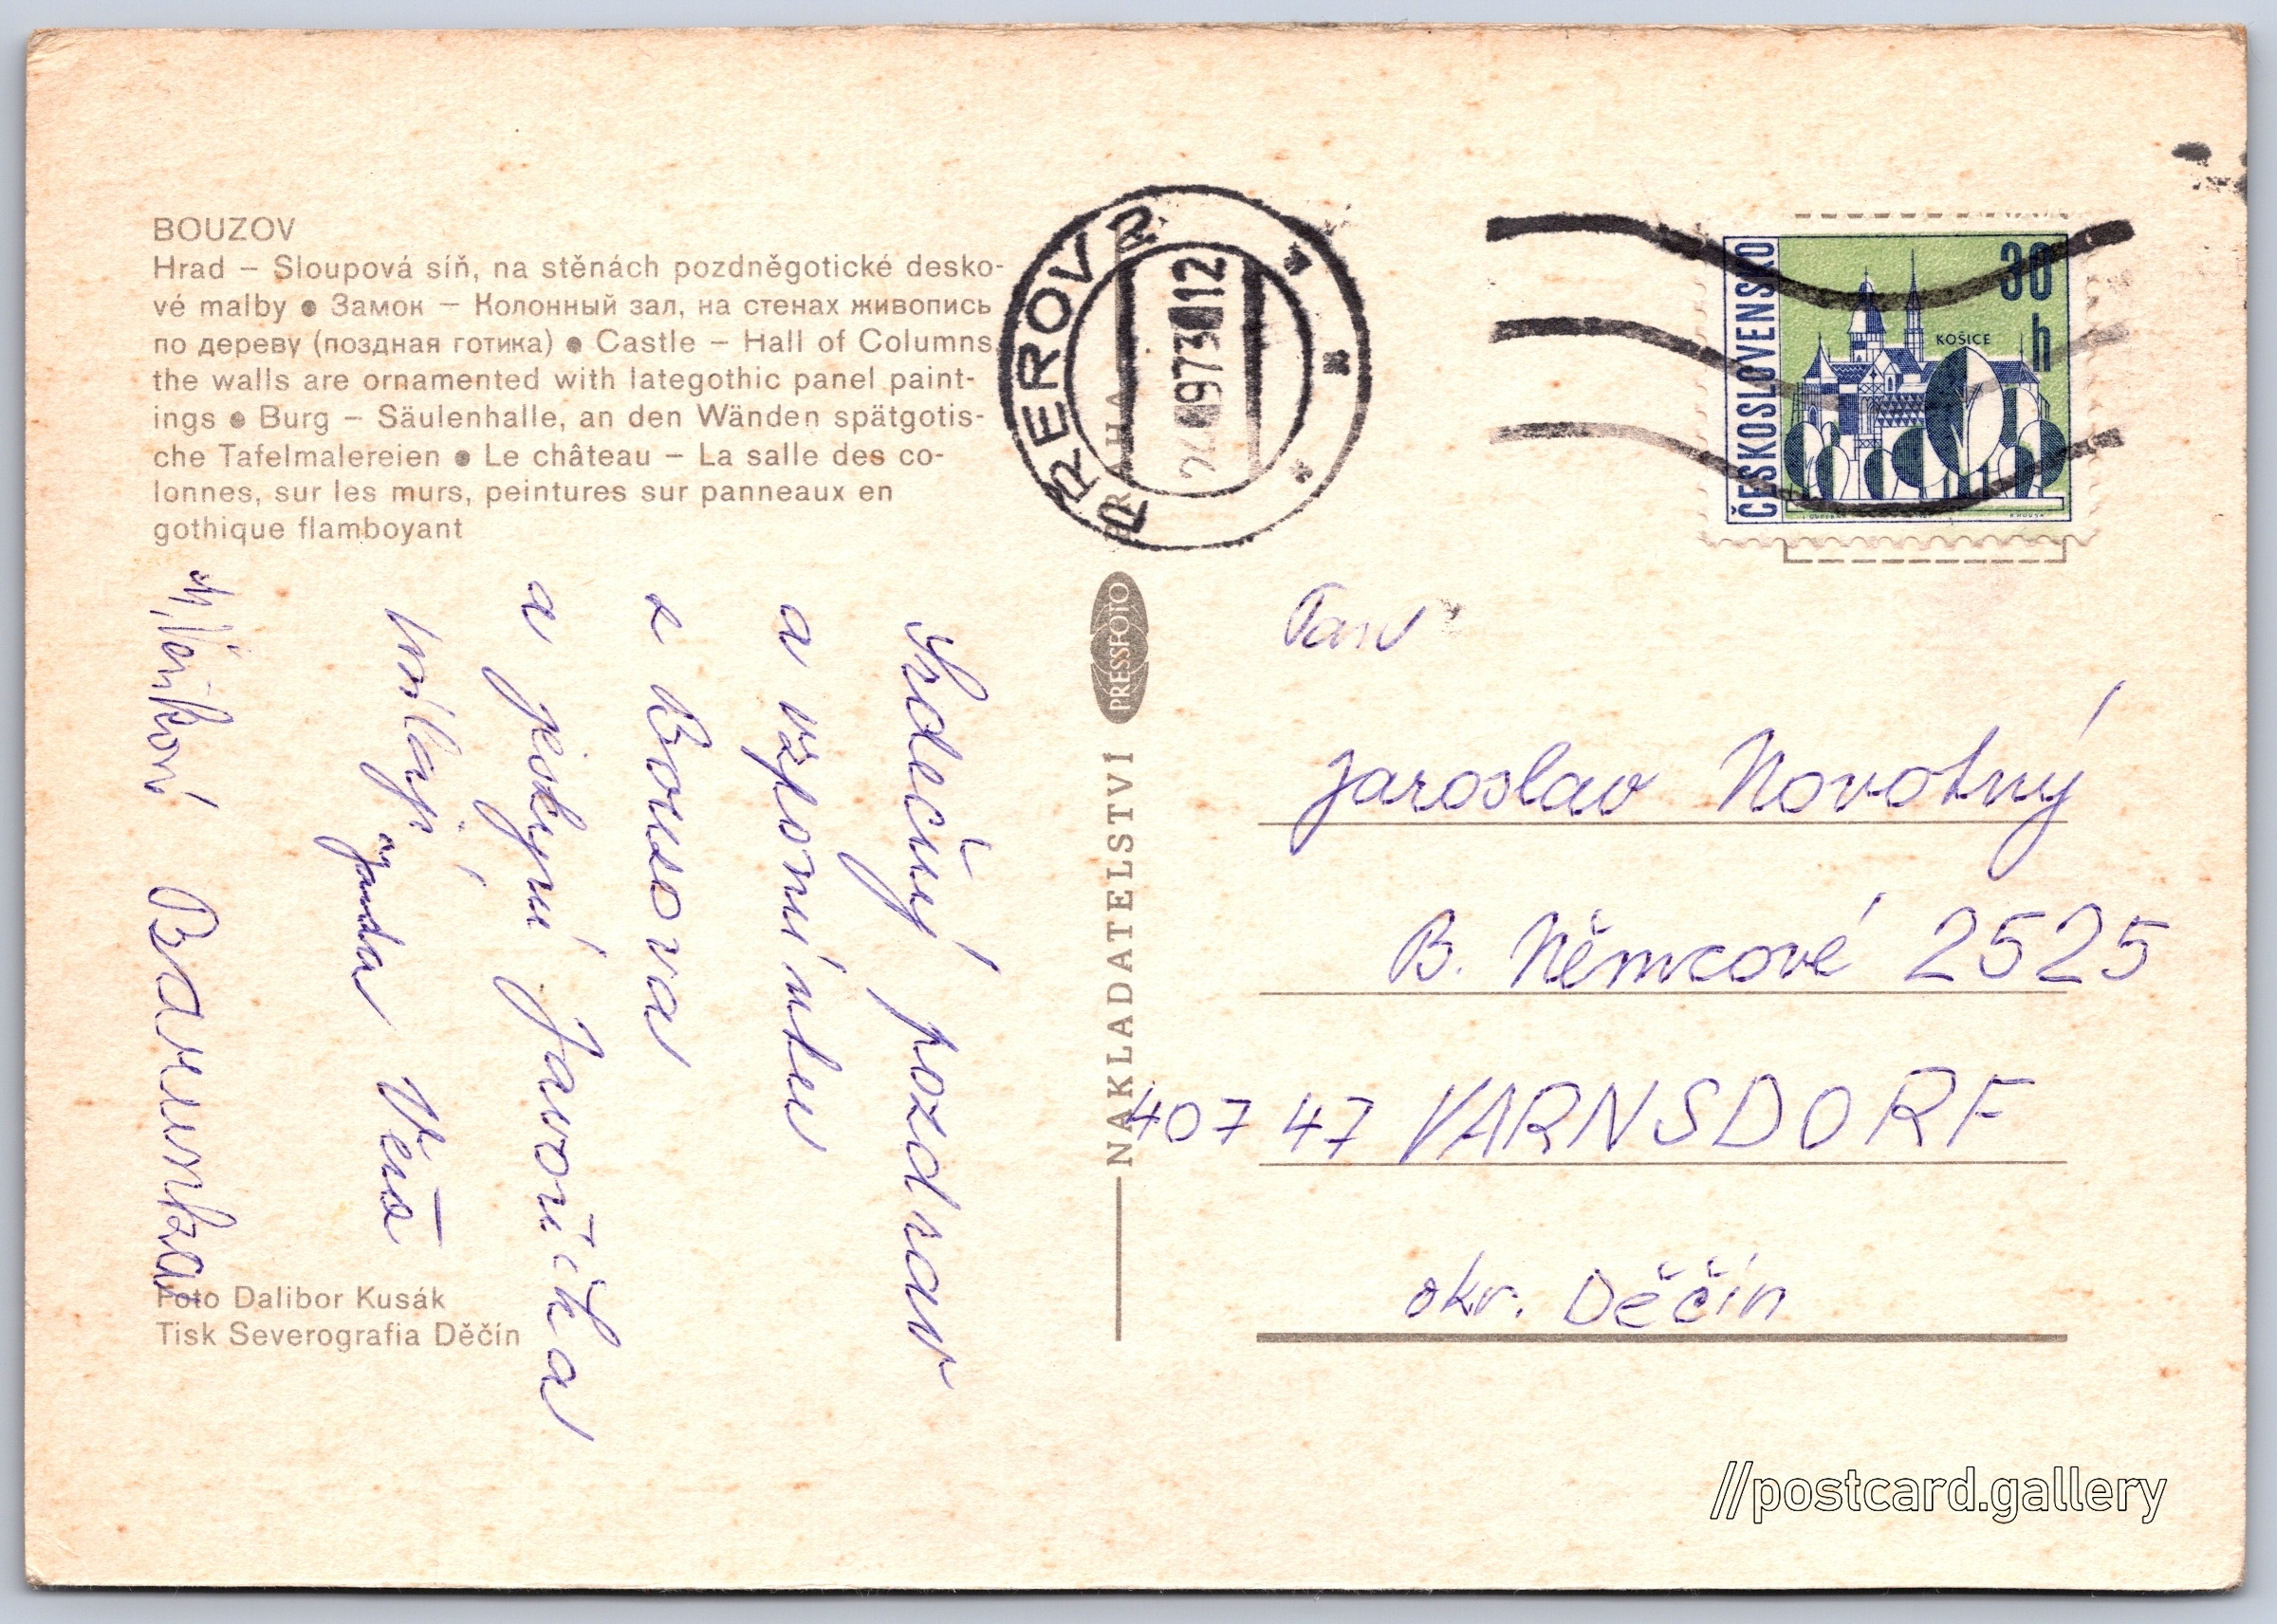 BOUZOV
Hrad – Sloupová síň, na stěnách pozdněgotické desko-
vé malby ● Замок – Колонный зал, на стенах живопись
по дереву (поздная готика) ● Castle – Hall of Columns,
the walls are ornamented with lategothic panel paint-
ings ● Burg – Säulenhalle, an den Wänden spätgotis-
che Tafelmalereien ● Le château – La salle des co-
lonnes, sur les murs, peintures sur panneaux en
gothique flamboyant
Srdečný pozdrav
a vzpomínku
z Bouzova
a jeskyní Javoříčka
Jenda Věra
Barunka
Foto Dalibor Kusák
Tisk Severografia Děčín
NAKLADATELSTVÍ PRESSFOTO PRAHA
PŘEROV 2
24.-9.73-12
ČESKOSLOVENSKO
30
h
KOŠICE
Pan
Jaroslav Novotný
B. Němcové 2525
407 47 VARNSDORF
okr. Děčín
//postcard.gallery